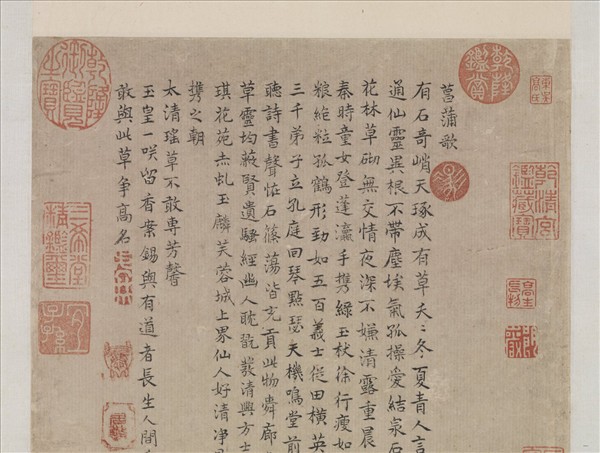 乾隆鑑賞
乾清宮鑑藏寶
菖蒲歌
有石奇峭天琢成有草夭〻冬夏青人言
通仙靈異根不帶塵埃氣孤操愛結泉石
花林草砌無交情夜深不嫌清露重晨
秦時童女登蓬瀛手携綠玉杖徐行瘦如
粮絶粒孤鶴形勁如五百義士從田橫英
三千弟子立孔庭回琴點瑟天機鳴堂前
聽詩書聲恠石篠蕩皆充貢此物舜廊
草靈均蔽賢遺騷經幽人耽翫發清興方士
琪花苑赤虬玉麟芙蓉城上界仙人好清净
携之朝
太清瑶草不敢專芳馨
玉皇一咲留香案錫與有道者長生人間
敢與此草争高名
乾隆御覽之寶
三希堂精鑑璽
宜子孫